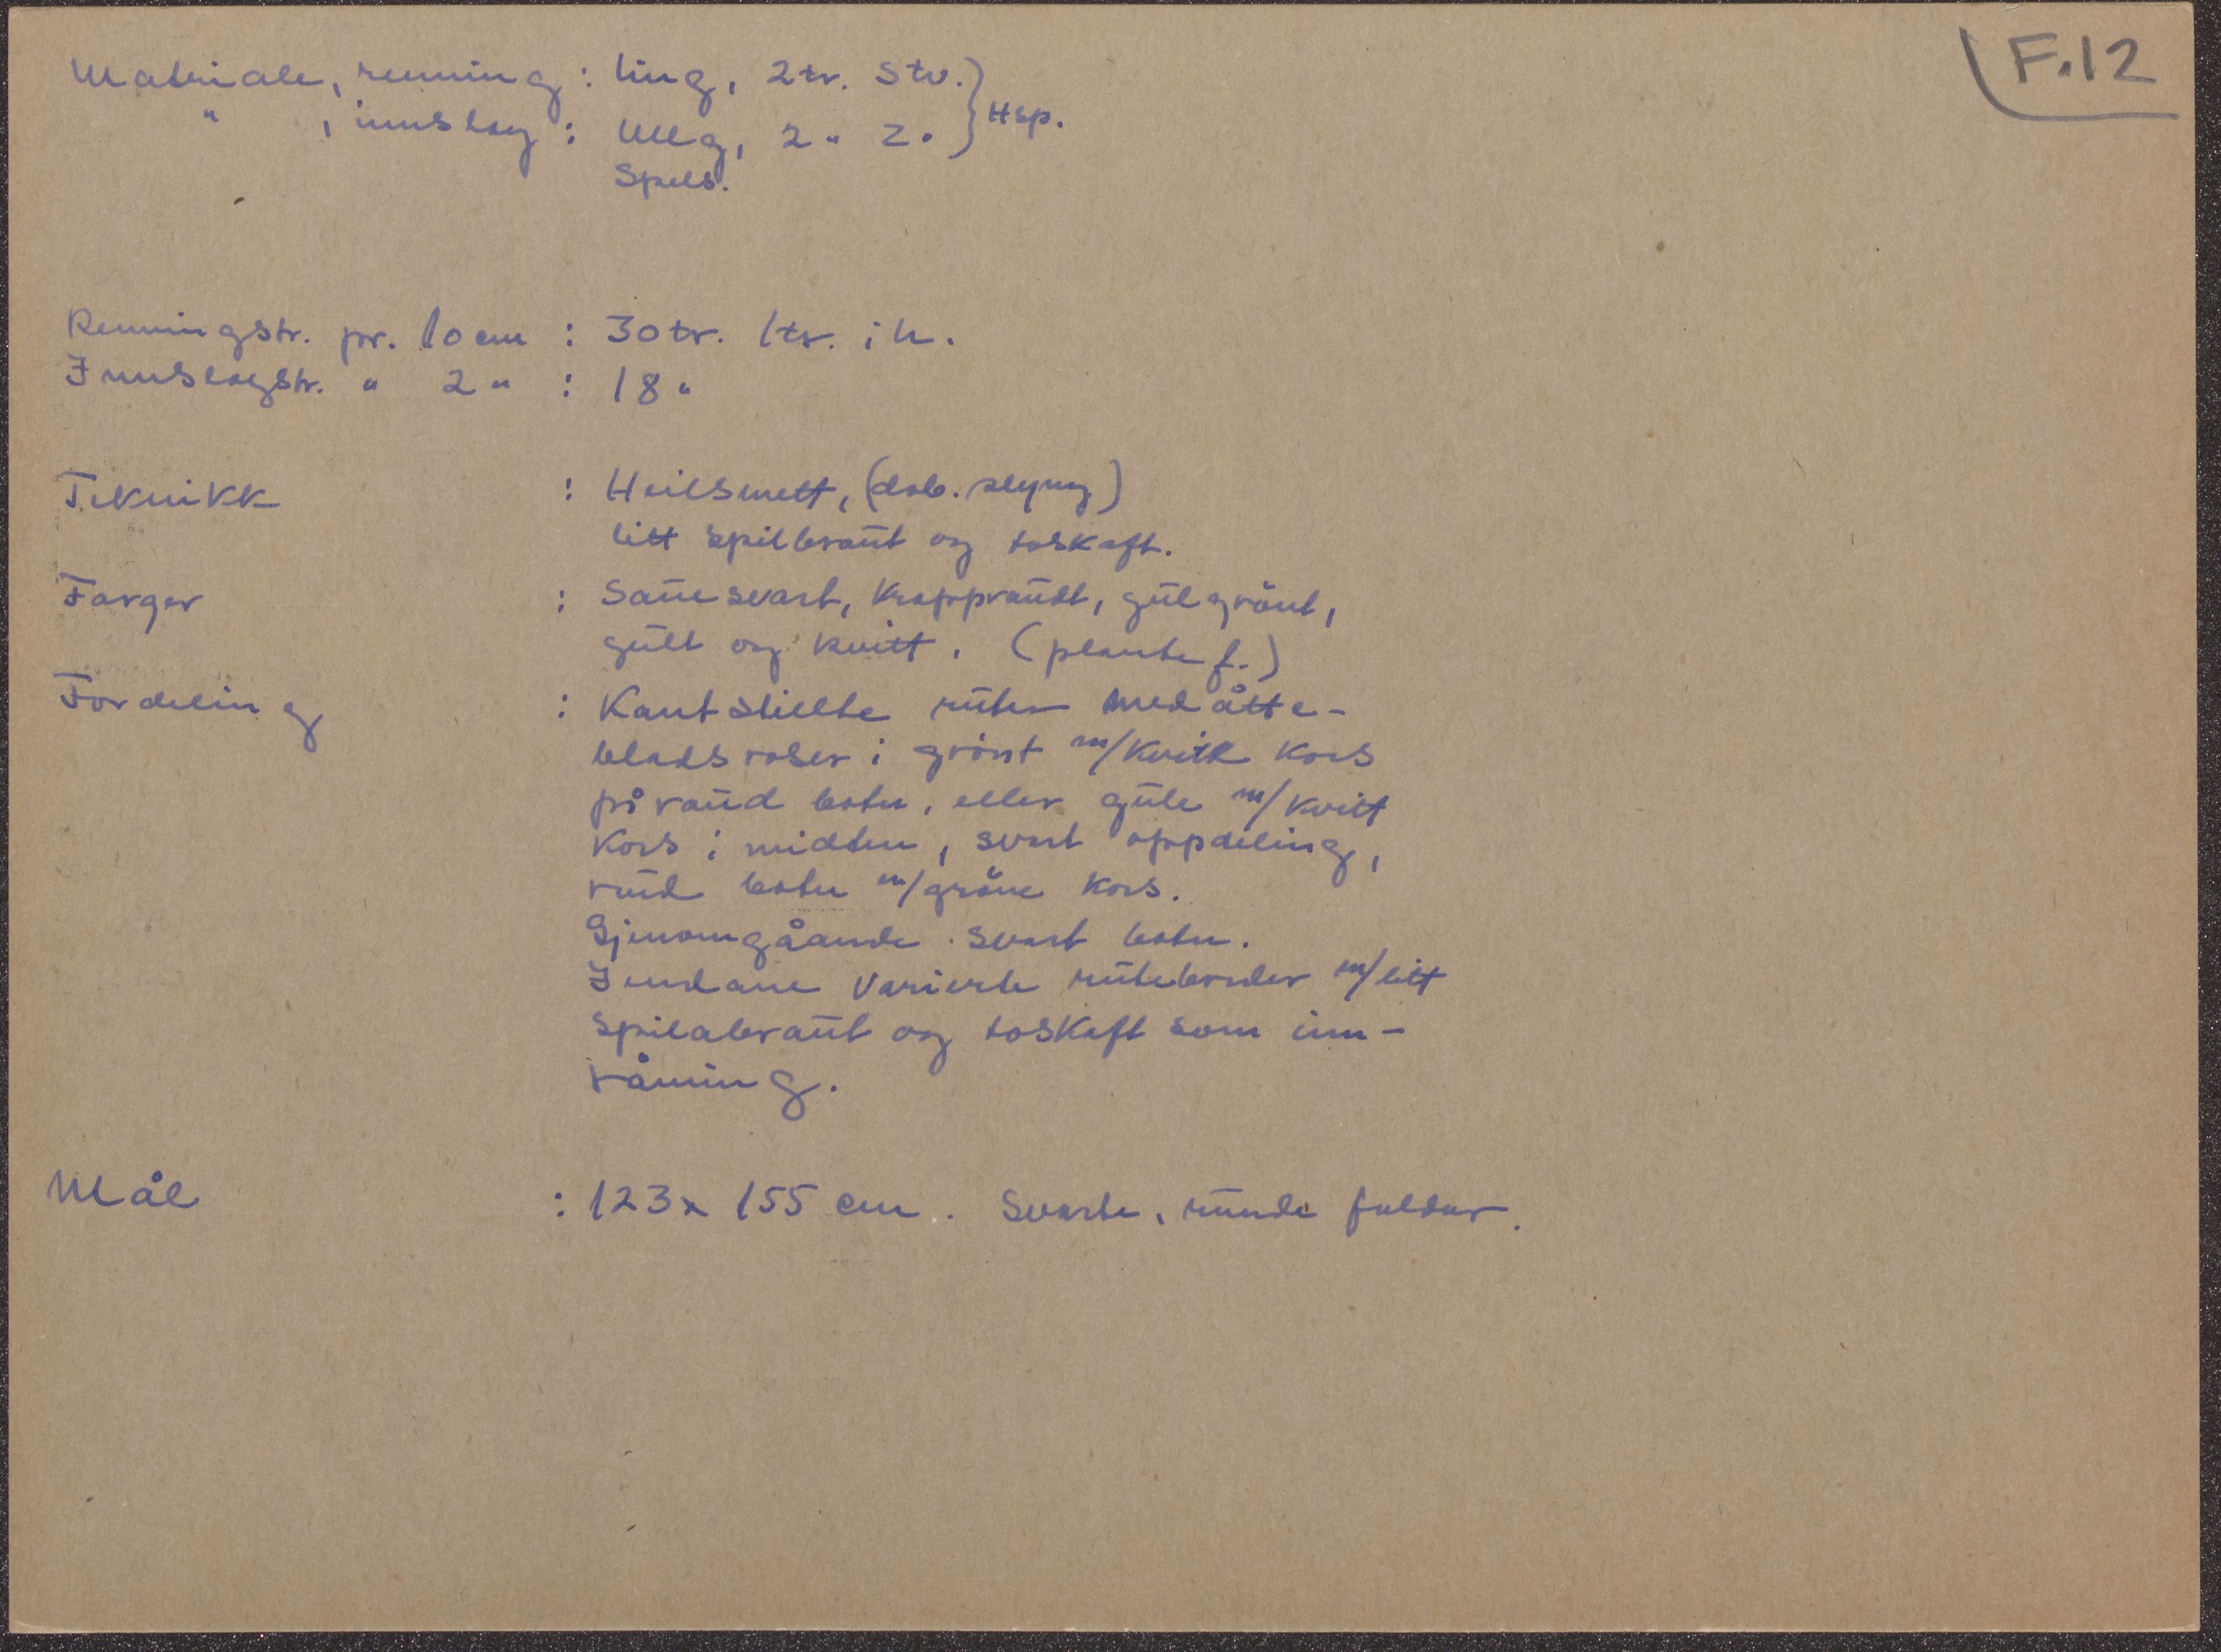 F.12
Materiale, renning : ling, 2tr. Stv. } Hsp.
" , innslag : Ullg, 2 " Z.
Spels.
Renningstr. pr. 10 cm : 30 tr. 1 tr. i h.
Innslagstr. " 2 " : 18 "
Teknikk : Heilsmett, (dob. slyng)
litt spilbraut og toskaft.
Farger : Sauesvart, Krappraudt, gulgrönt,
gult og kvitt. (plante f.)
Fordeling : Kantstillte ruter med åtte-
bladsroser i grönt m/kvitt kors
på raud botn, eller gule m/kvitt
kors i midten, svart oppdeling,
rud botn m/gröne kors.
Gjenomgåande svart botn.
I endane varierte rutebonder m/litt
spilabraut og toskaft som inn-
råming.
Mål : 123 x 155 cm. Svarte, runde faldar.